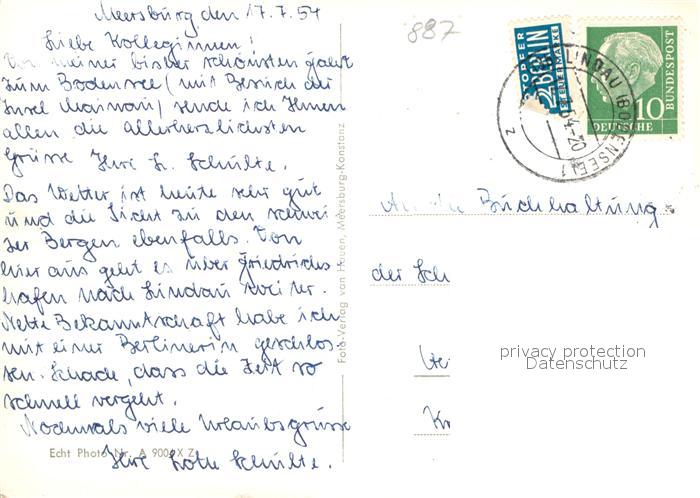 Meersburg den 17.7.54
Liebe Kolleginnen!
Von meiner bisher schönsten Fahrt
zum Bodensee (mit Besuch der
Insel Mainau) sende ich Ihnen
allen die allerherzlichsten
Grüsse Ihre L. Schulte.
Das Wetter ist heute sehr gut
und die Sicht zu den schwei
zer Bergen ebenfalls. Von
hier aus geht es über Friedrichs
hafen nach Lindau weiter.
Nette Bekanntschaft habe ich
mit einer Berlinerin geschlos-
sen. Schade, dass die Zeit so
schnell vergeht.
Nochmals viele Urlaubsgrüsse
Ihre Schulte.
Echt Photo Nr. A 900 X Z
Foto-Verlag von Hauen, Meersburg-Konstanz
887
NOTOPFER
2 BERLIN
STEUERMARKE
LINDAU (BODENSEE) 1
54-20
z
10
DEUTSCHE
BUNDESPOST
An die Buchhaltung
der Sch
privacy protection
Datenschutz